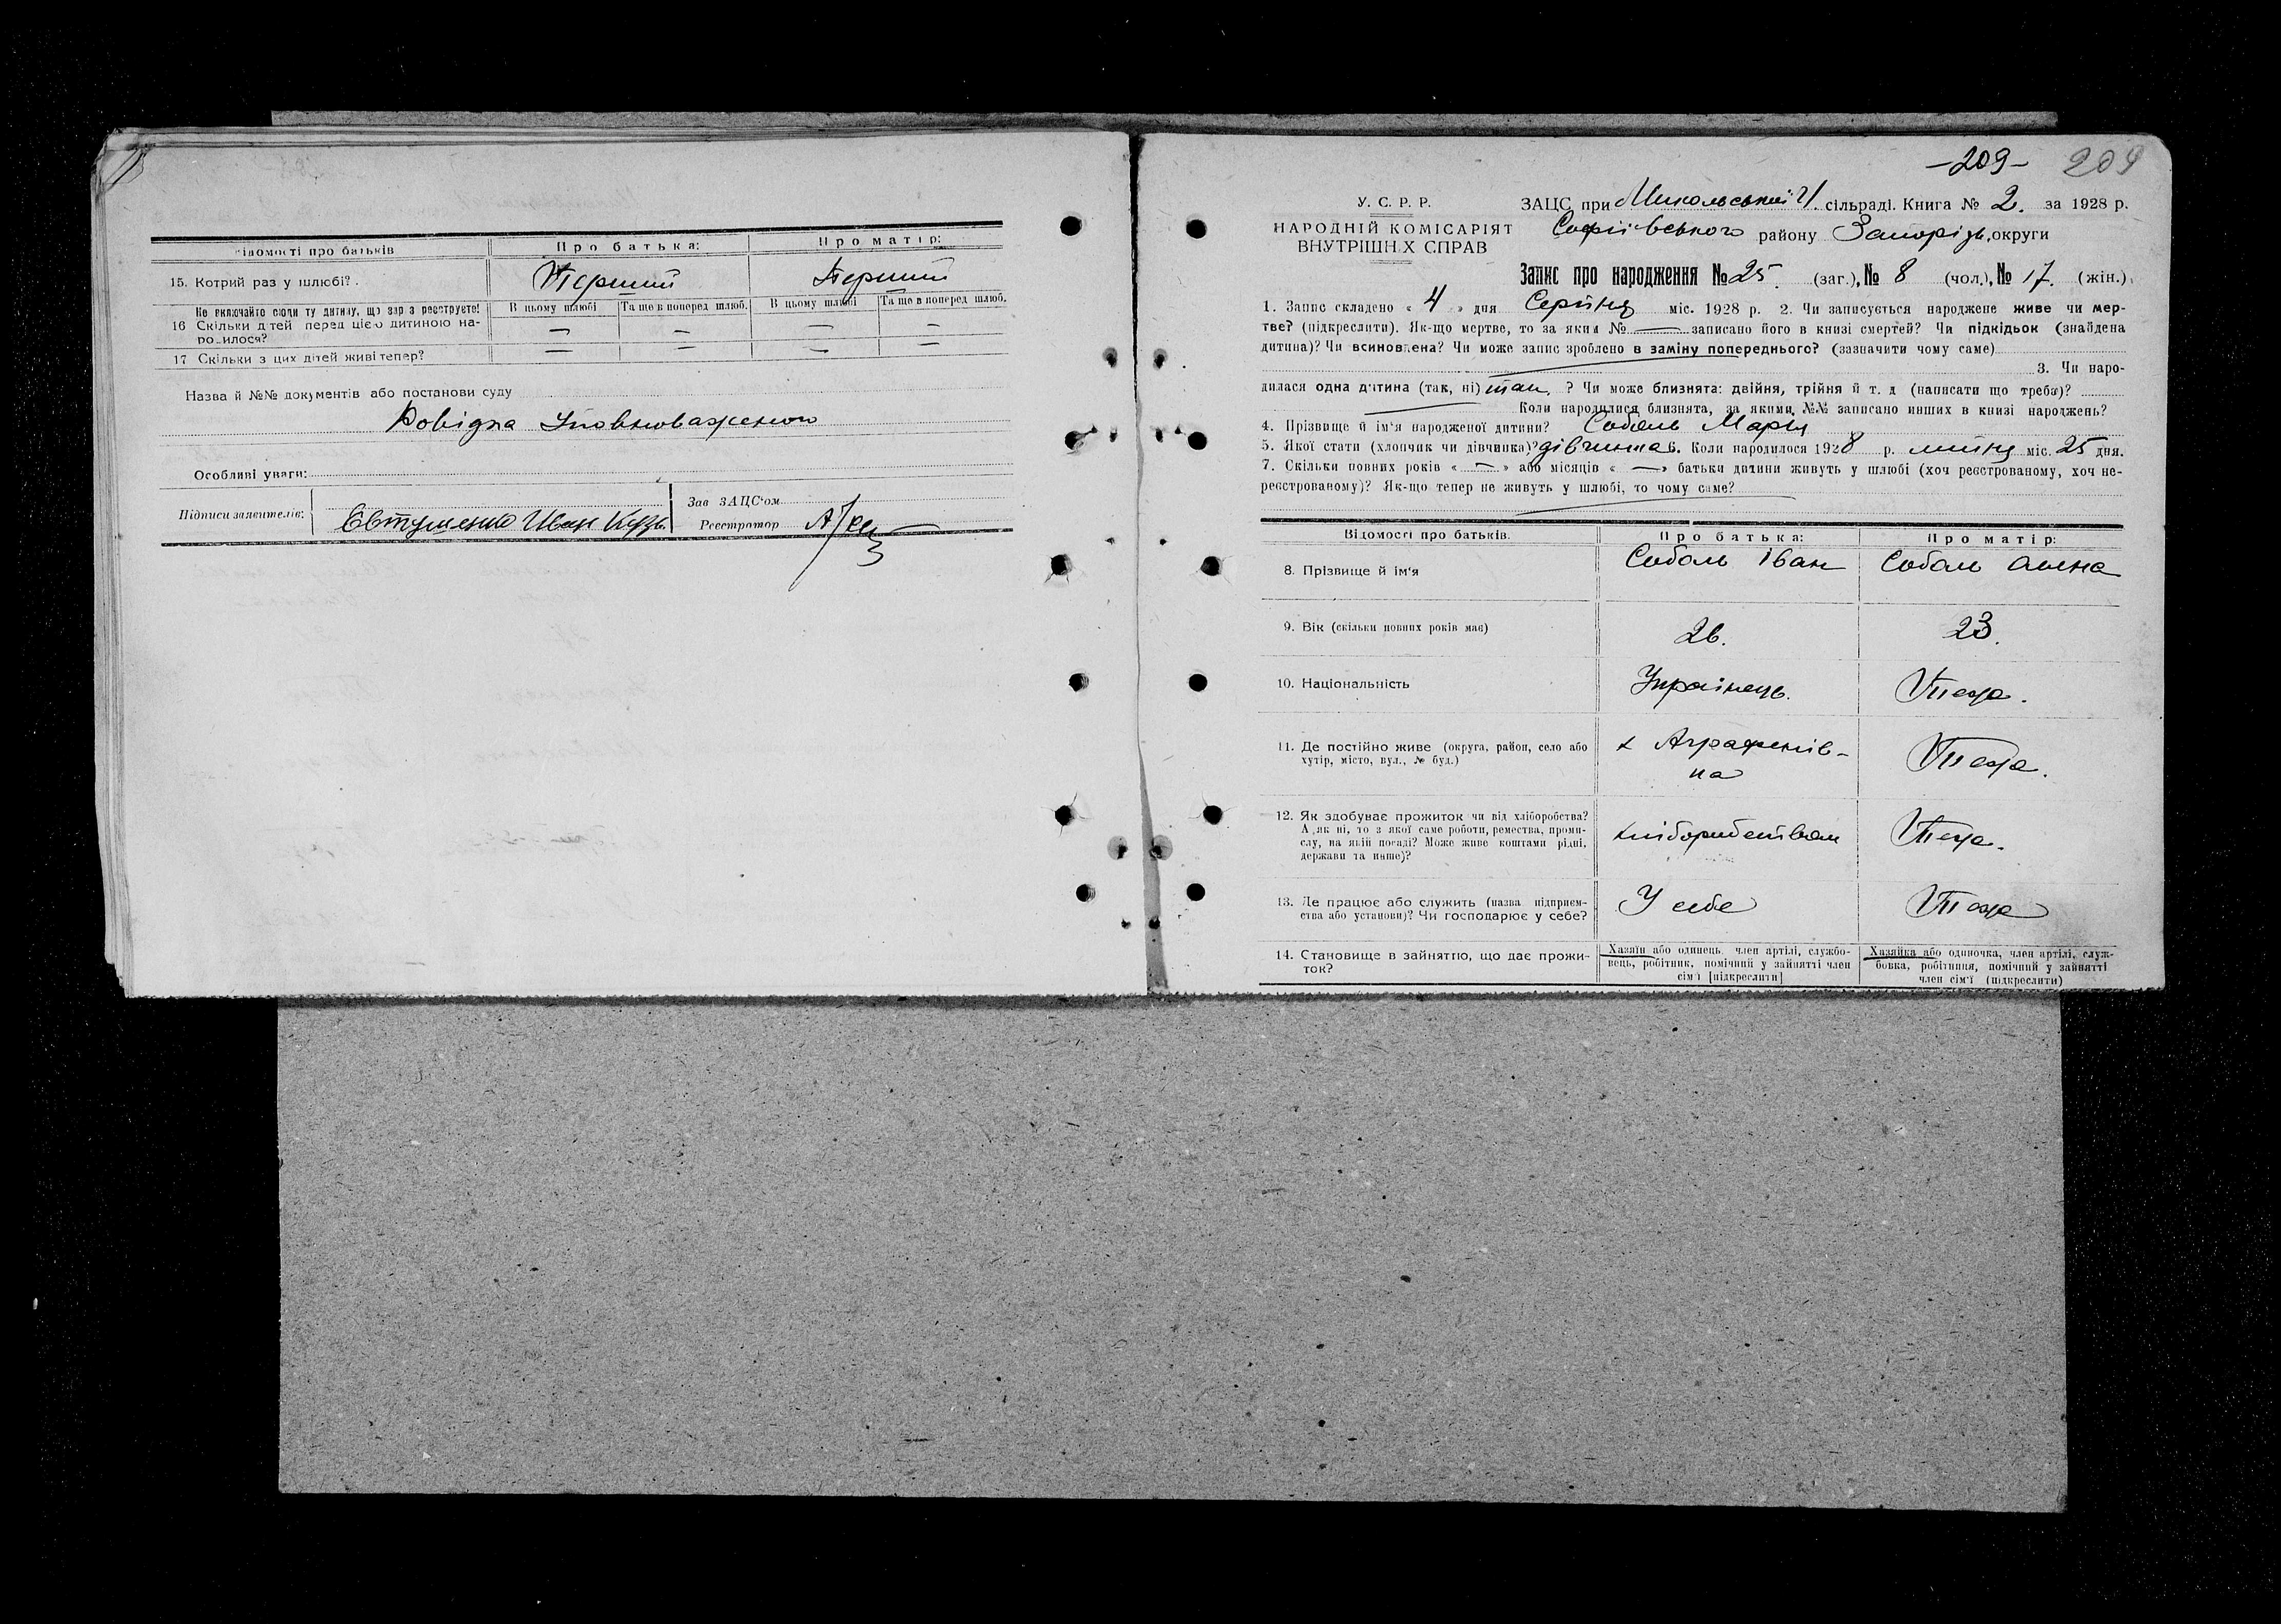 Відомості про батьків
Про батька:
Про матір:
15. Котрий раз у шлюбі?
Перший
Перший
Не включайте сюди ту дитину, що зараз реєструєте!
16 Скільки дітей перед цією дитиною на-
родилося?
В цьому шлюбі
Та ще в поперед шлюб.
В цьому шлюбі
Та ще в поперед шлюб.
— — — —
17 Скільки з цих дітей живі тепер?
— — — —
Назва й №№ документів або постанови суду
Довідка Уповноваженого
Особливі уваги:
Підписи заявителів:
Євтушенко Иван Кузь
Зав ЗАЦС'ом
Реєстратор
-209- 209
У. С. Р. Р.
НАРОДНІЙ КОМІСАРІЯТ
ВНУТРІШНІХ СПРАВ
ЗАЦС при Микольський сільраді. Книга № 2. за 1928 р.
Софіївського району Запорізь. округи
Запис про народження № 25. (заг.), № 8 (чол.), № 17. (жін.)
1. Запис складено « 4 » дня Серпня міс. 1928 р. 2. Чи записується народжене живе чи мер-
тве? (підкреслити). Як-що мертве, то за яким № — записано його в книзі смертей? Чи підкідьок (знайдена
дитина)? Чи всиновлена? Чи може запис зроблено в заміну попереднього? (зазначити чому саме)
3. Чи наро-
дилася одна дитина (так, ні) так ? Чи може близнята: двійня, трійня й т. д (написати що треба)?
Коли народилися близнята, за якими №№ записано инших в книзі народжень?
4. Прізвище й ім'я народженої дитини? Соболь Марія
5. Якої стати (хлопчик чи дівчинка)? дівчинка 6. Коли народилося 1928 р. липня міс. 25 дня.
7. Скільки повних років « — » або місяців « — » батьки дитини живуть у шлюбі (хоч реєстрованому, хоч не-
реєстрованому)? Як-що тепер не живуть у шлюбі, то чому саме?
Відомості про батьків.
Про батька:
Про матір:
8. Прізвище й ім'я
Соболь Іван
Соболь
9. Вік (скільки повних років має)
26.
23.
10. Національність
Українець.
Теж.
11. Де постійно живе (округа, район, село або
хутір, місто, вул., № буд.)
х Аграфенів-
ка
Теж.
12. Як здобуває прожиток чи від хліборобства?
А як ні, то з якої саме роботи, ремества, проми-
слу, на якій посаді? Може живе коштами рідні,
держави та инше)?
хліборобством
Теж.
13. Де працює або служить (назва підприєм-
ства або установи)? Чи господарює у себе?
У себе
Теж
14. Становище в зайняттю, що дає прожи-
ток?
Хазяїн або одинець, член артілі, службо-
вець, робітник, помічний у зайнятті член
сім'ї [підкреслити]
Хазяйка або одиночка, член артілі, служ-
бовка, робітниця, помічний у зайнятті
член сім'ї (підкреслити)